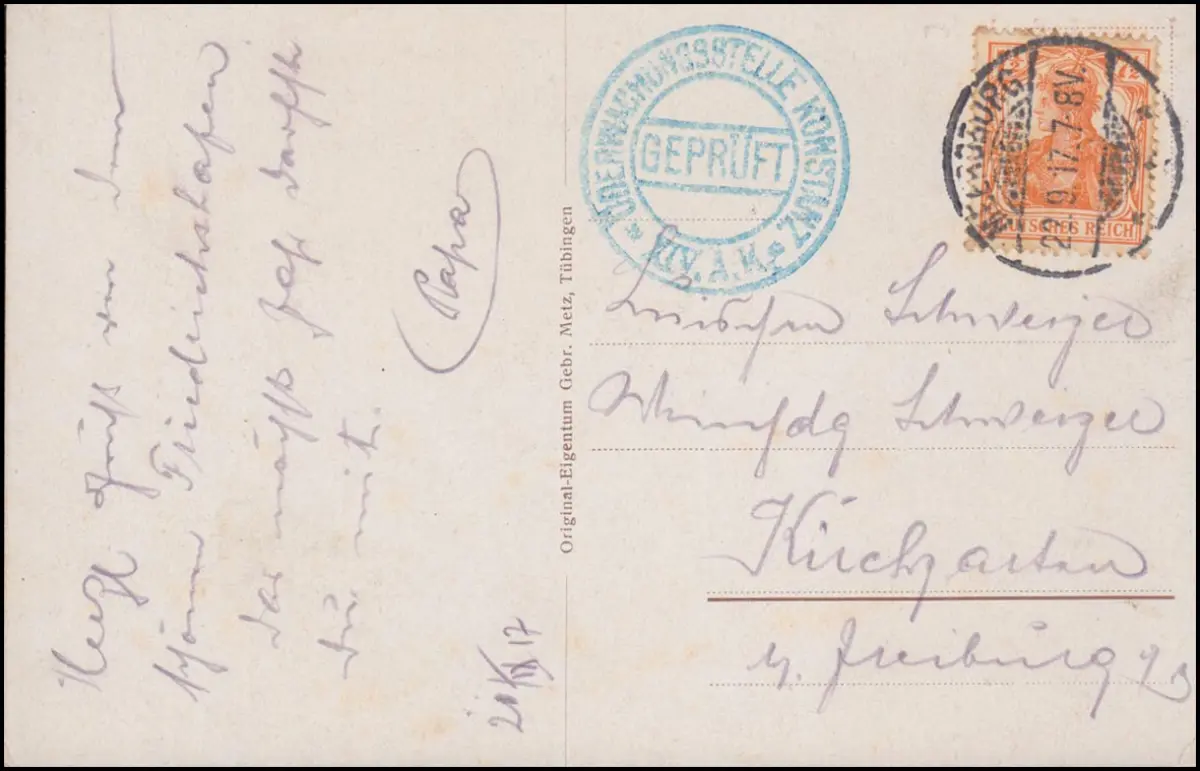 Herzl. Grüße von dem
schönen Friedrichshafen
Das nächste
Du mit.
Papa
21/IX 17
Original-Eigentum Gebr. Metz, Tübingen
ÜBERWACHUNGSSTELLE KONSTANZ
GEPRÜFT
XIV. A.K.
MEERSBURG
22.9.17.7-8V.
7½
DEUTSCHES REICH
Luischen Schweizer
Schweizer
Kirchzarten
b/ Freiburg i/B